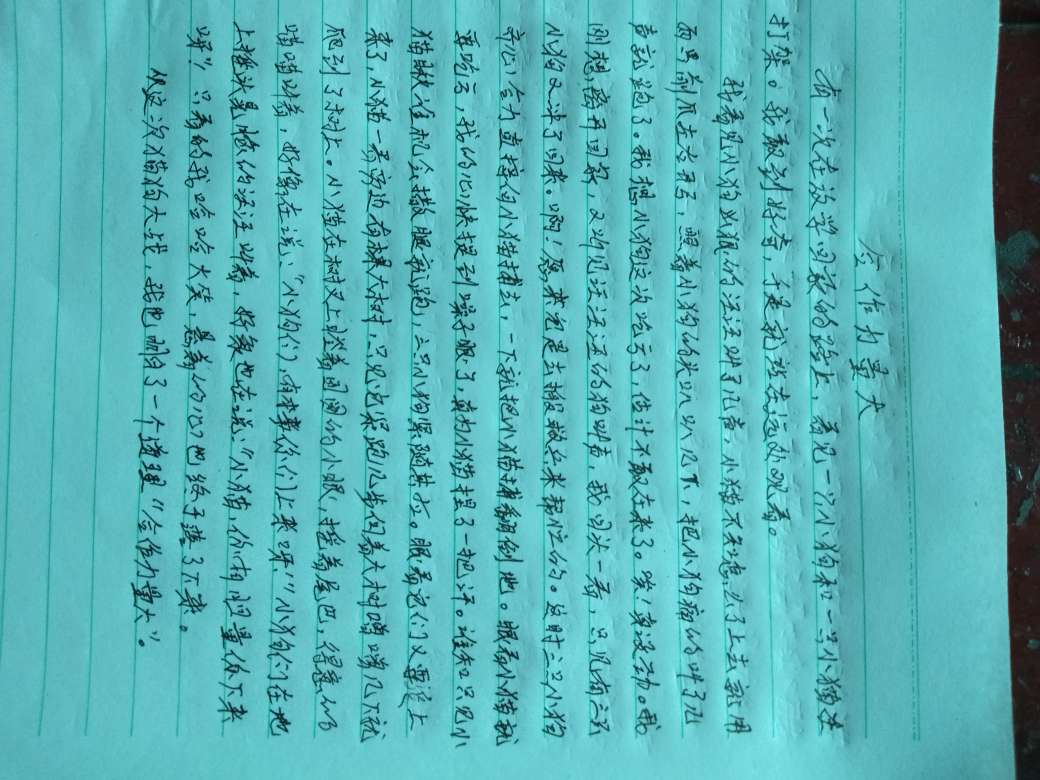 合作力量大
有一次在放学回家的路上，看见一只小狗和一只小猫在
打架。我感到好奇，于是就站在远处观看。
我看见小狗凶狠的汪汪叫了几声，小猫不示弱，上去就用
两只前爪去迎，照着小狗的头叭叭几下，把小狗痛的叫了几
声就跑了。我想小狗这次吃亏了，估计不敢在来了。唉！真没劲。我
刚想离开回家，又听见汪汪汪的狗叫声，我回头一看，只见有三只
小狗又冲了回来。啊！原来它是去搬救兵来帮忙的。这时三只小狗
齐心合力直接向小猫扑去，一下就把小猫扑翻倒地。眼看小猫就
要吃亏，我的心快提到嗓子眼了，真为小猫捏了一把汗。谁知只见小
猫瞅准机会撒腿就跑，三只小狗紧随其后。眼看它们又要追上
来了，小猫一看旁边有棵大树，只见它紧跑几步向着大树噌噌几下就
爬到了树上。小猫在树叉上瞪着圆圆的小眼，摇着尾巴，得意的
喵喵叫着，好像在说：“小狗们，有本事你们上来呀！”小狗们在地
上抬头是愤怒的汪汪叫着，好象也在说：“小猫，你有胆量你下来
呀”，只看的我哈哈大笑，悬着的心也终于落了下来。
从这次猫狗大战，我也明白了一个道理“合作力量大”。